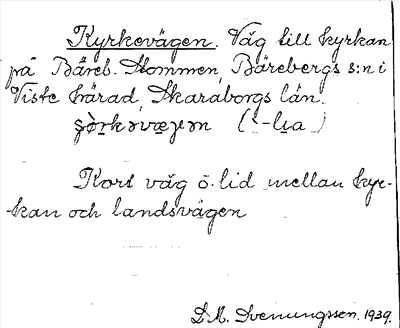 Kyrkevägen. Väg till kyrkan
på Bäreb. Mommen, Bärebergs s:n i
Viste härad, Skaraborgs län.
(`-lɩa)
Kort väg o. lid mellan kyr-
kan och landsvägen
D. M. Svenungssen. 1939.